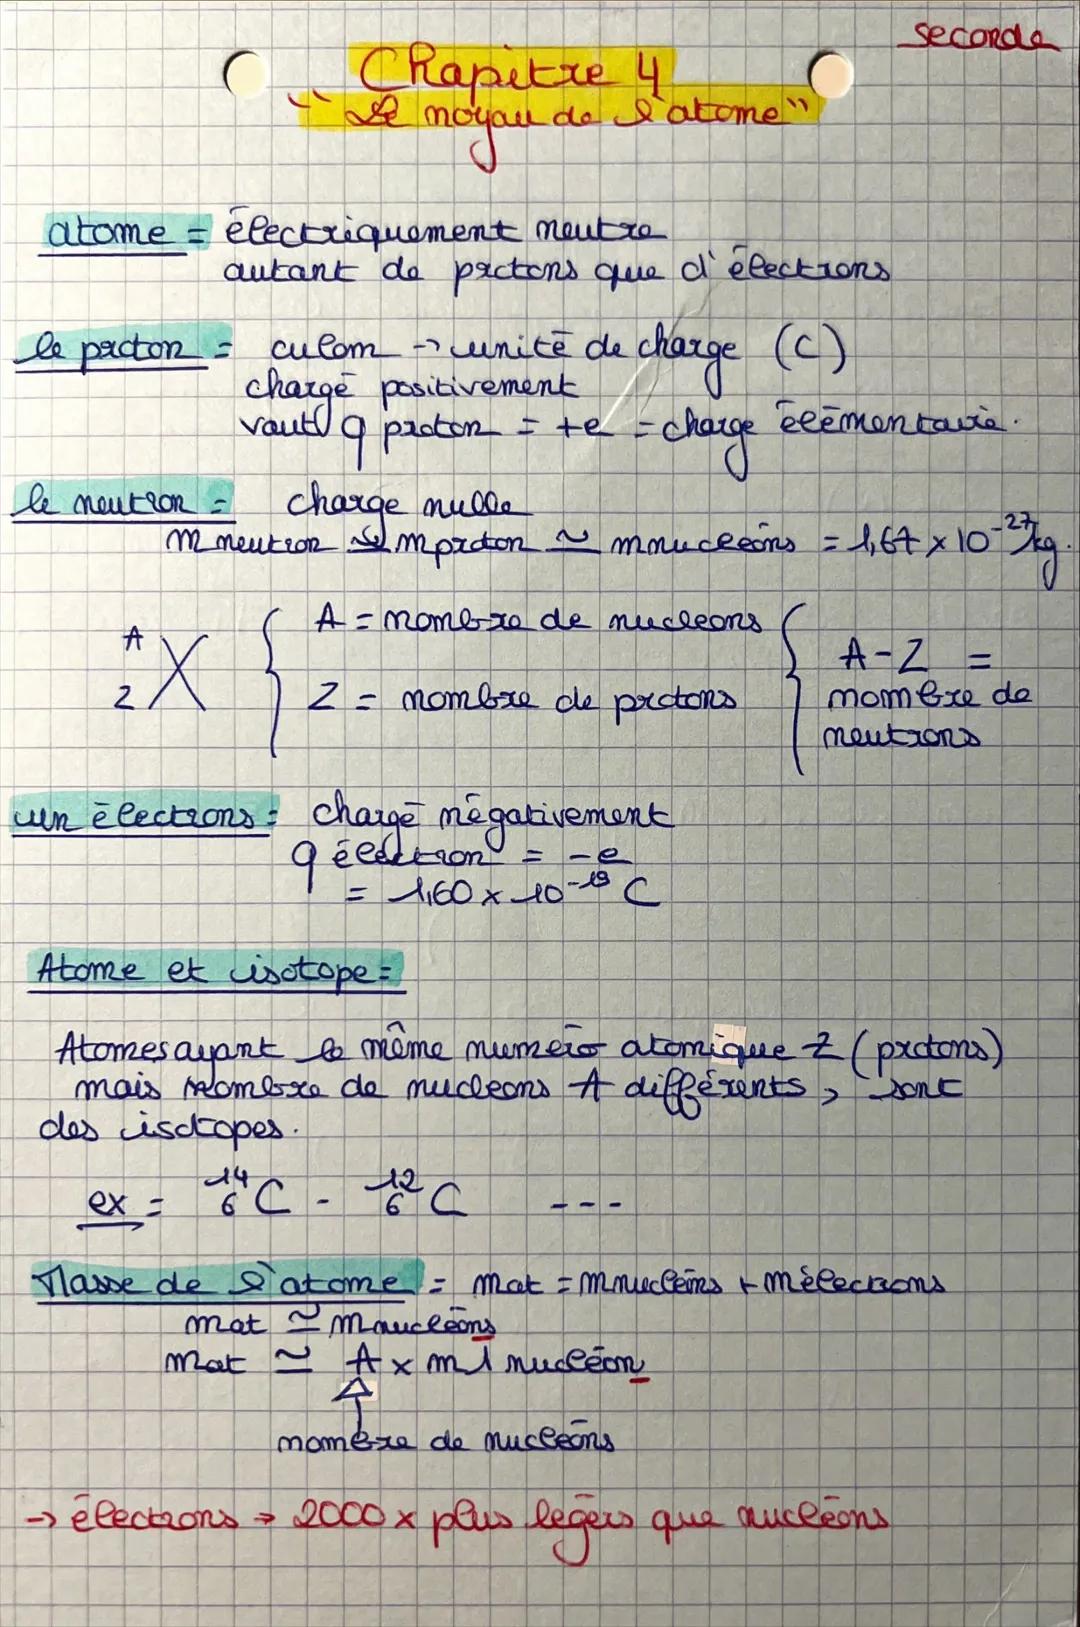 seconde
Chapitre 4
"Le noyau de l'atome"
atome = électriquement neutre
autant de protons que d'électrons
le proton = culom → unité de charge (C)
chargé positivement
vaut q proton = +e = charge élémentaire.
le neutron = charge nulle
m neutron ≃ m proton ≃ m nucléons = 1,67 × 10⁻²⁷ kg.
A = nombre de nucleons
ᴬ X
A - Z =
Z
Z = nombre de protons
nombre de
neutrons
un électrons = chargé négativement
q électron = -e
= 1,60 × 10⁻¹⁹ C
Atome et isotope =
Atomes ayant le même numéro atomique Z (protons)
mais nombre de nucleons A différents, sont
des isotopes.
ex = ¹⁴₆C - ¹²₆C ---
Masse de l'atome = mat = m nucléons + m électrons
mat ≃ m nucléons
mat ≃ A × m 1 nucléon
nombre de nucléons
→ électrons → 2000 × plus légers que nucléons